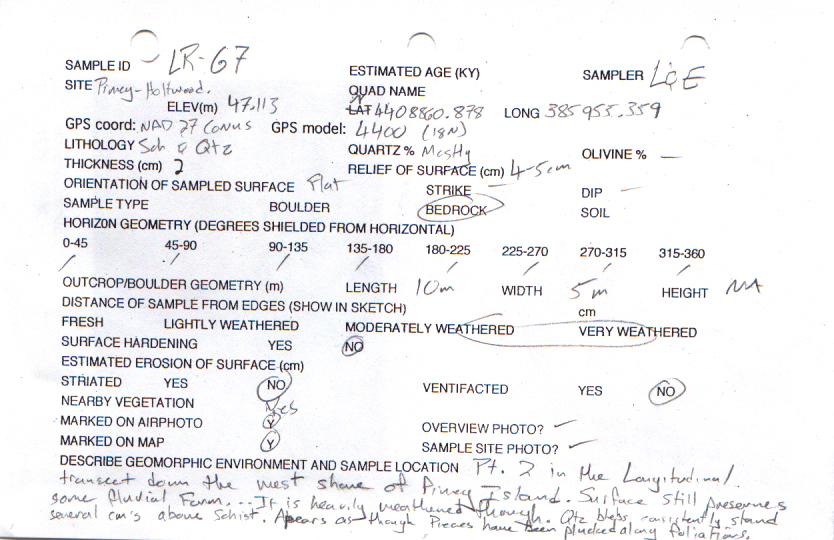 SAMPLE ID LR-67
ESTIMATED AGE (KY) SAMPLER LQE
SITE Piney-Holtwood. QUAD NAME
ELEV(m) 47.113 LAT N 4408860.878 LONG 385955.359
GPS coord: NAD 27 Conus GPS model: 4400 (18N)
LITHOLOGY Sch & Qtz QUARTZ % Mostly OLIVINE % —
THICKNESS (cm) 2 RELIEF OF SURFACE (cm) 4-5cm
ORIENTATION OF SAMPLED SURFACE Flat STRIKE — DIP —
SAMPLE TYPE BOULDER BEDROCK SOIL
HORIZON GEOMETRY (DEGREES SHIELDED FROM HORIZONTAL)
0-45 45-90 90-135 135-180 180-225 225-270 270-315 315-360
/ / / / / / / /
OUTCROP/BOULDER GEOMETRY (m) LENGTH 10m WIDTH 5m HEIGHT NA
DISTANCE OF SAMPLE FROM EDGES (SHOW IN SKETCH) cm
FRESH LIGHTLY WEATHERED MODERATELY WEATHERED VERY WEATHERED
SURFACE HARDENING YES NO
ESTIMATED EROSION OF SURFACE (cm)
STRIATED YES NO VENTIFACTED YES NO
NEARBY VEGETATION Yes
MARKED ON AIRPHOTO Y OVERVIEW PHOTO? ✓
MARKED ON MAP Y SAMPLE SITE PHOTO? ✓
DESCRIBE GEOMORPHIC ENVIRONMENT AND SAMPLE LOCATION Pt. 2 in the Longitudinal
transect down the west shore of Piney Island. Surface still preserves
some fluvial Form... It is heavily weathered though. Qtz blebs consistently stand
several cm's above Schist. Apears as though Pieces have been plucked along foliations.